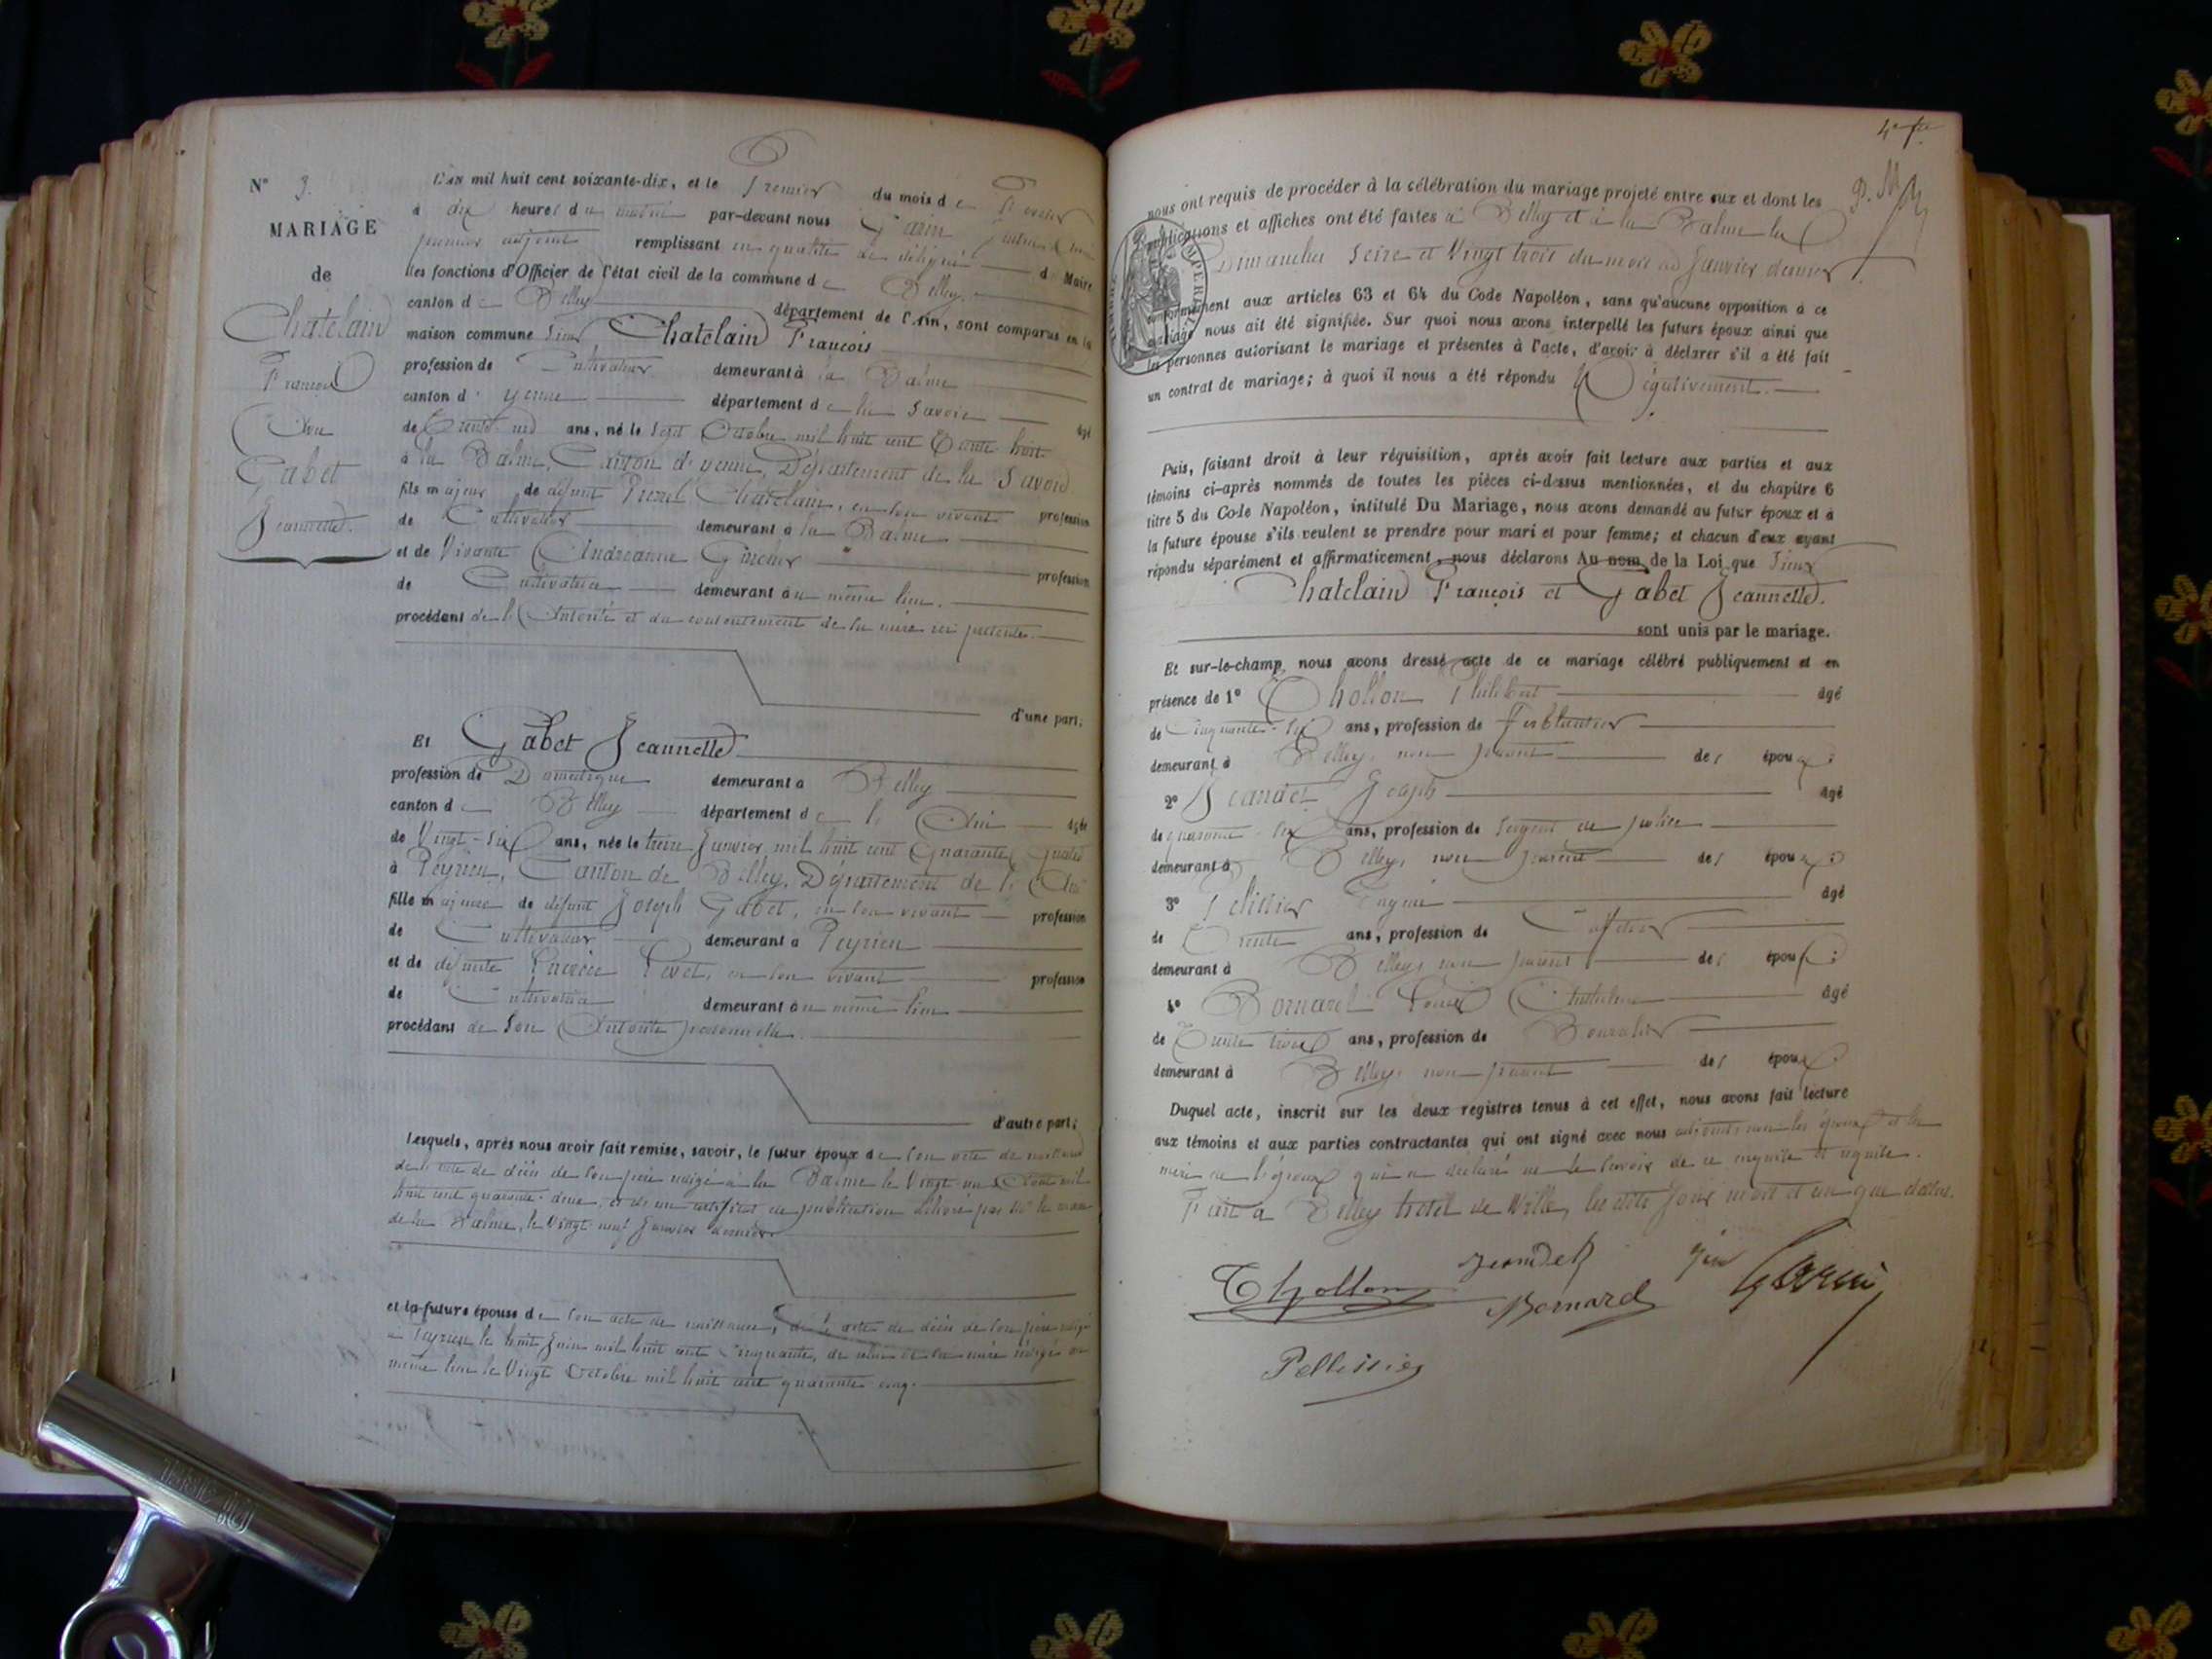 N° 3.
MARIAGE
de
Chatelain
François
Avec
Gabet
Jeannette.
L'an mil huit cent soixante-dix, et le Premier du mois de Février
à dix heures du matin par-devant nous Garin
premier adjoint remplissant en qualité de délégué du Maire
les fonctions d'Officier de l'état civil de la commune de Belley,
canton de Belley département de l'Ain, sont comparus en la
maison commune Sieur Chatelain François
profession de Cultivateur demeurant à la Balme
canton d' yenne département de la Savoie âgé
de Trente un ans, né le Sept Octobre mil huit cent Trente huit
à la Balme, Canton d'yenne, Département de la Savoie
fils majeur de défunt Chatelain, en son vivant profession
de Cultivateur demeurant à la Balme
et de Vivante profession
de Cultivatrice demeurant au même lieu.
procédant de l'Autorité et du consentement de sa mère ici présente.
d'une part;
Et Gabet Jeannette
profession de Domestique demeurant à Belley
canton de Belley département de l'Ain âgée
de Vingt-Six ans, née le treize Janvier mil huit cent Quarante Quatre
à Peyrieu, Canton de Belley, Département de l'Ain
fille majeure de défunt Joseph Gabet, en son vivant profession
de Cultivateur demeurant à Peyrieu
et de défunte en son vivant profession
de Cultivatrice demeurant au même lieu
procédant de Son Autorité personnelle.
d'autre part;
Lesquels, après nous avoir fait remise, savoir, le futur époux de son acte de naissance
de l'acte de décès de son père rédigé à la Balme le Vingt un Août mil
huit cent quarante-deux, et de un certificat de publication délivré par Mr le maire
de la Balme, le Vingt neuf Janvier dernier
et la future épouse de son acte de naissance, de l'acte de décès de son père rédigé
à Peyrieu le huit Juin mil huit cent Cinquante, de celui de sa mère rédigé au
même lieu le Vingt Octobre mil huit cent quarante cinq.
nous ont requis de procéder à la célébration du mariage projeté entre eux et dont les
publications et affiches ont été faites à Belley et à la Balme les
Dimanches Seize et Vingt trois du mois de Janvier dernier
conformément aux articles 63 et 64 du Code Napoléon, sans qu'aucune opposition à ce
mariage nous ait été signifiée. Sur quoi nous avons interpellé les futurs époux ainsi que
les personnes autorisant le mariage et présentes à l'acte, d'avoir à déclarer s'il a été fait
un contrat de mariage; à quoi il nous a été répondu Négativement.
Puis, faisant droit à leur réquisition, après avoir fait lecture aux parties et aux
témoins ci-après nommés de toutes les pièces ci-dessus mentionnées, et du chapitre 6
titre 5 du Code Napoléon, intitulé Du Mariage, nous avons demandé au futur époux et à
la future épouse s'ils veulent se prendre pour mari et pour femme; et chacun d'eux ayant
répondu séparément et affirmativement, nous déclarons Au nom de la Loi que Sieur
Chatelain François et Gabet Jeannette.
sont unis par le mariage.
Et sur-le-champ nous avons dressé acte de ce mariage célébré publiquement et en
présence de 1° Thollon Philibert âgé
de Cinquante-Six ans, profession de Ferblantier
demeurant à Belley, non parent des époux;
2° Jeandet Joseph âgé
de quarante-Six ans, profession de Sergent de police
demeurant à Belley, non parent des époux;
3° Pelissier Eugène âgé
de Trente ans, profession de Cafetier
demeurant à Belley, non parent des époux;
4° Bornarel Louis Anthelme âgé
de Trente trois ans, profession de Bourrelier
demeurant à Belley, non parent des époux.
Duquel acte, inscrit sur les deux registres tenus à cet effet, nous avons fait lecture
aux témoins et aux parties contractantes qui ont signé avec nous adjoint, non les époux et la
mère de l'époux qui ont déclaré ne le savoir de ce enquis et requis.
Fait à Belley hôtel de Ville, les dits Jour mois et an que dessus.
Thollon Jeandet Garin
Bornarel
Pellissier